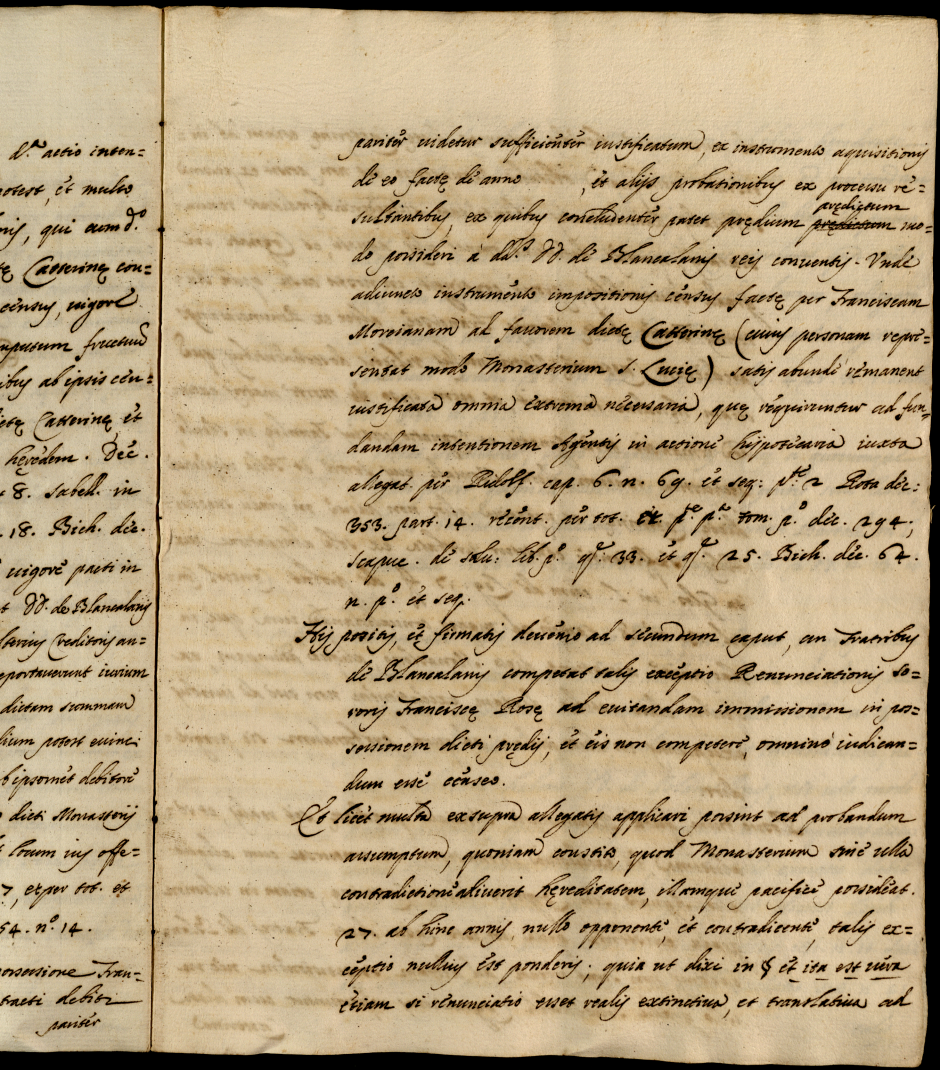 d.ª actio inten=
potest, et multo
nis, qui eum d.º
tę Catterinę con=
census, vigore
mputum fructuũ
ibus ab ipsis cen=
ctę Catterinę et
hęredem. Dec.
8. Sabell. in
18. Bich. dec.
vigore pacti in
t DD. de Blancalanis
Creditoris an=
reportaverunt iurium
dictam summam
dium potest evinci
b ipsomet debitore
dicti Monasterij
t locum ius offe=
7, et per tot. et
54. n.º 14.
possessione Fran=
tracti debiti
pariter
pariter videtur sufficienter iustificatum, ex instrumento aquisitionis
de eo factę de anno , et alijs probationibus ex processu re=
prędictum
sultantibus, ex quibus concludenter patet prędium prędictum mo=
do possideri à dd.is DD. de Blancalanis reis conventis. Unde
adiuncto instrumento impositionis census factę per Franciscam
Moroianam ad favorem dictę Catterinę (cuius personam reprę=
sentat modo Monasterium S. Lucię) satis abundè remanent
iustificata omnia extrema necessaria, quę requiruntur ad fun=
dandam intentionem Agentis in actione hypotecaria iuxta
allegat. per Ridolf. cap. 6. n. 69. et seq: p.te 2 Rota dec:
353. part. 14. recent. per tot. et p.te p.ª tom. p.º dec. 294;
Scacc. de Salu: lib. p.º q.: 33. et q.: 25. Bich. dec. 64.
n. p.º et seq.
His positis, et firmatis devenio ad secundum caput, an Fratribus
de Blancalanis competat talis exceptio Renunciationis So=
roris Franciscę Rosę ad evitandam immissionem in pos=
sessionem dicti prędij, et eis non competere, omninò iudican=
dum esse censeo.
Et licet multa ex supra allegatis applicari possint ad probandum
assumptum, quoniam constito, quod Monasterium sine ulla
contradictione adiverit hęreditatem, illamque pacificè possideat.
27. ab hinc annis, nullo opponente, et contradicente, talis ex=
ceptio nullius est ponderis; quia ut dixi in § et ita est vera
etiam si renunciatio esset realis extinctiva, et translativa ad